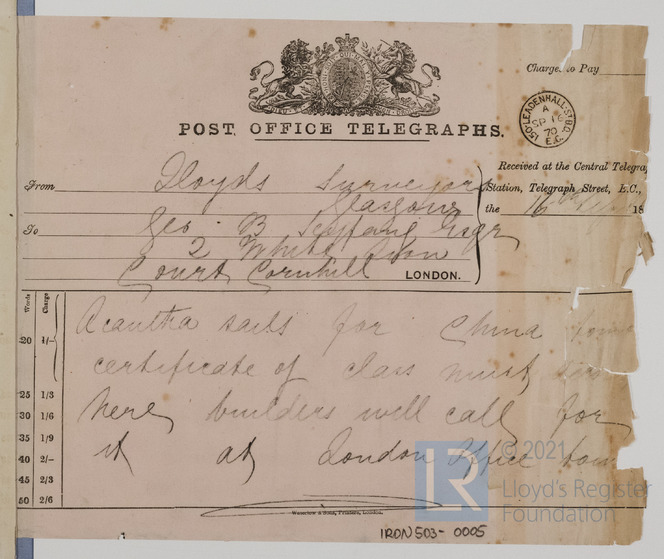 Charges to Pay
POST OFFICE TELEGRAPHS.
150 LEADENHALL ST B.O.
A
SP 16
70
E.C.
Received at the Central Telegra
Station, Telegraph Street, E.C.,
the 16th 18
From Lloyds Surveyors
Glasgow
To Geo. B Seyfang Esqr
2 White Lion
Court Cornhill LONDON.
Words Charge
Acantha sails for China
20 1/- certificate of class must
25 1/3 here builders will call for
30 1/6
35 1/9
40 2/- it at London Office
45 2/3
50 2/6
Waterlow & Sons, Printers, London.
LR © 2021
Lloyd's Register
Foundation
IRON503-0005